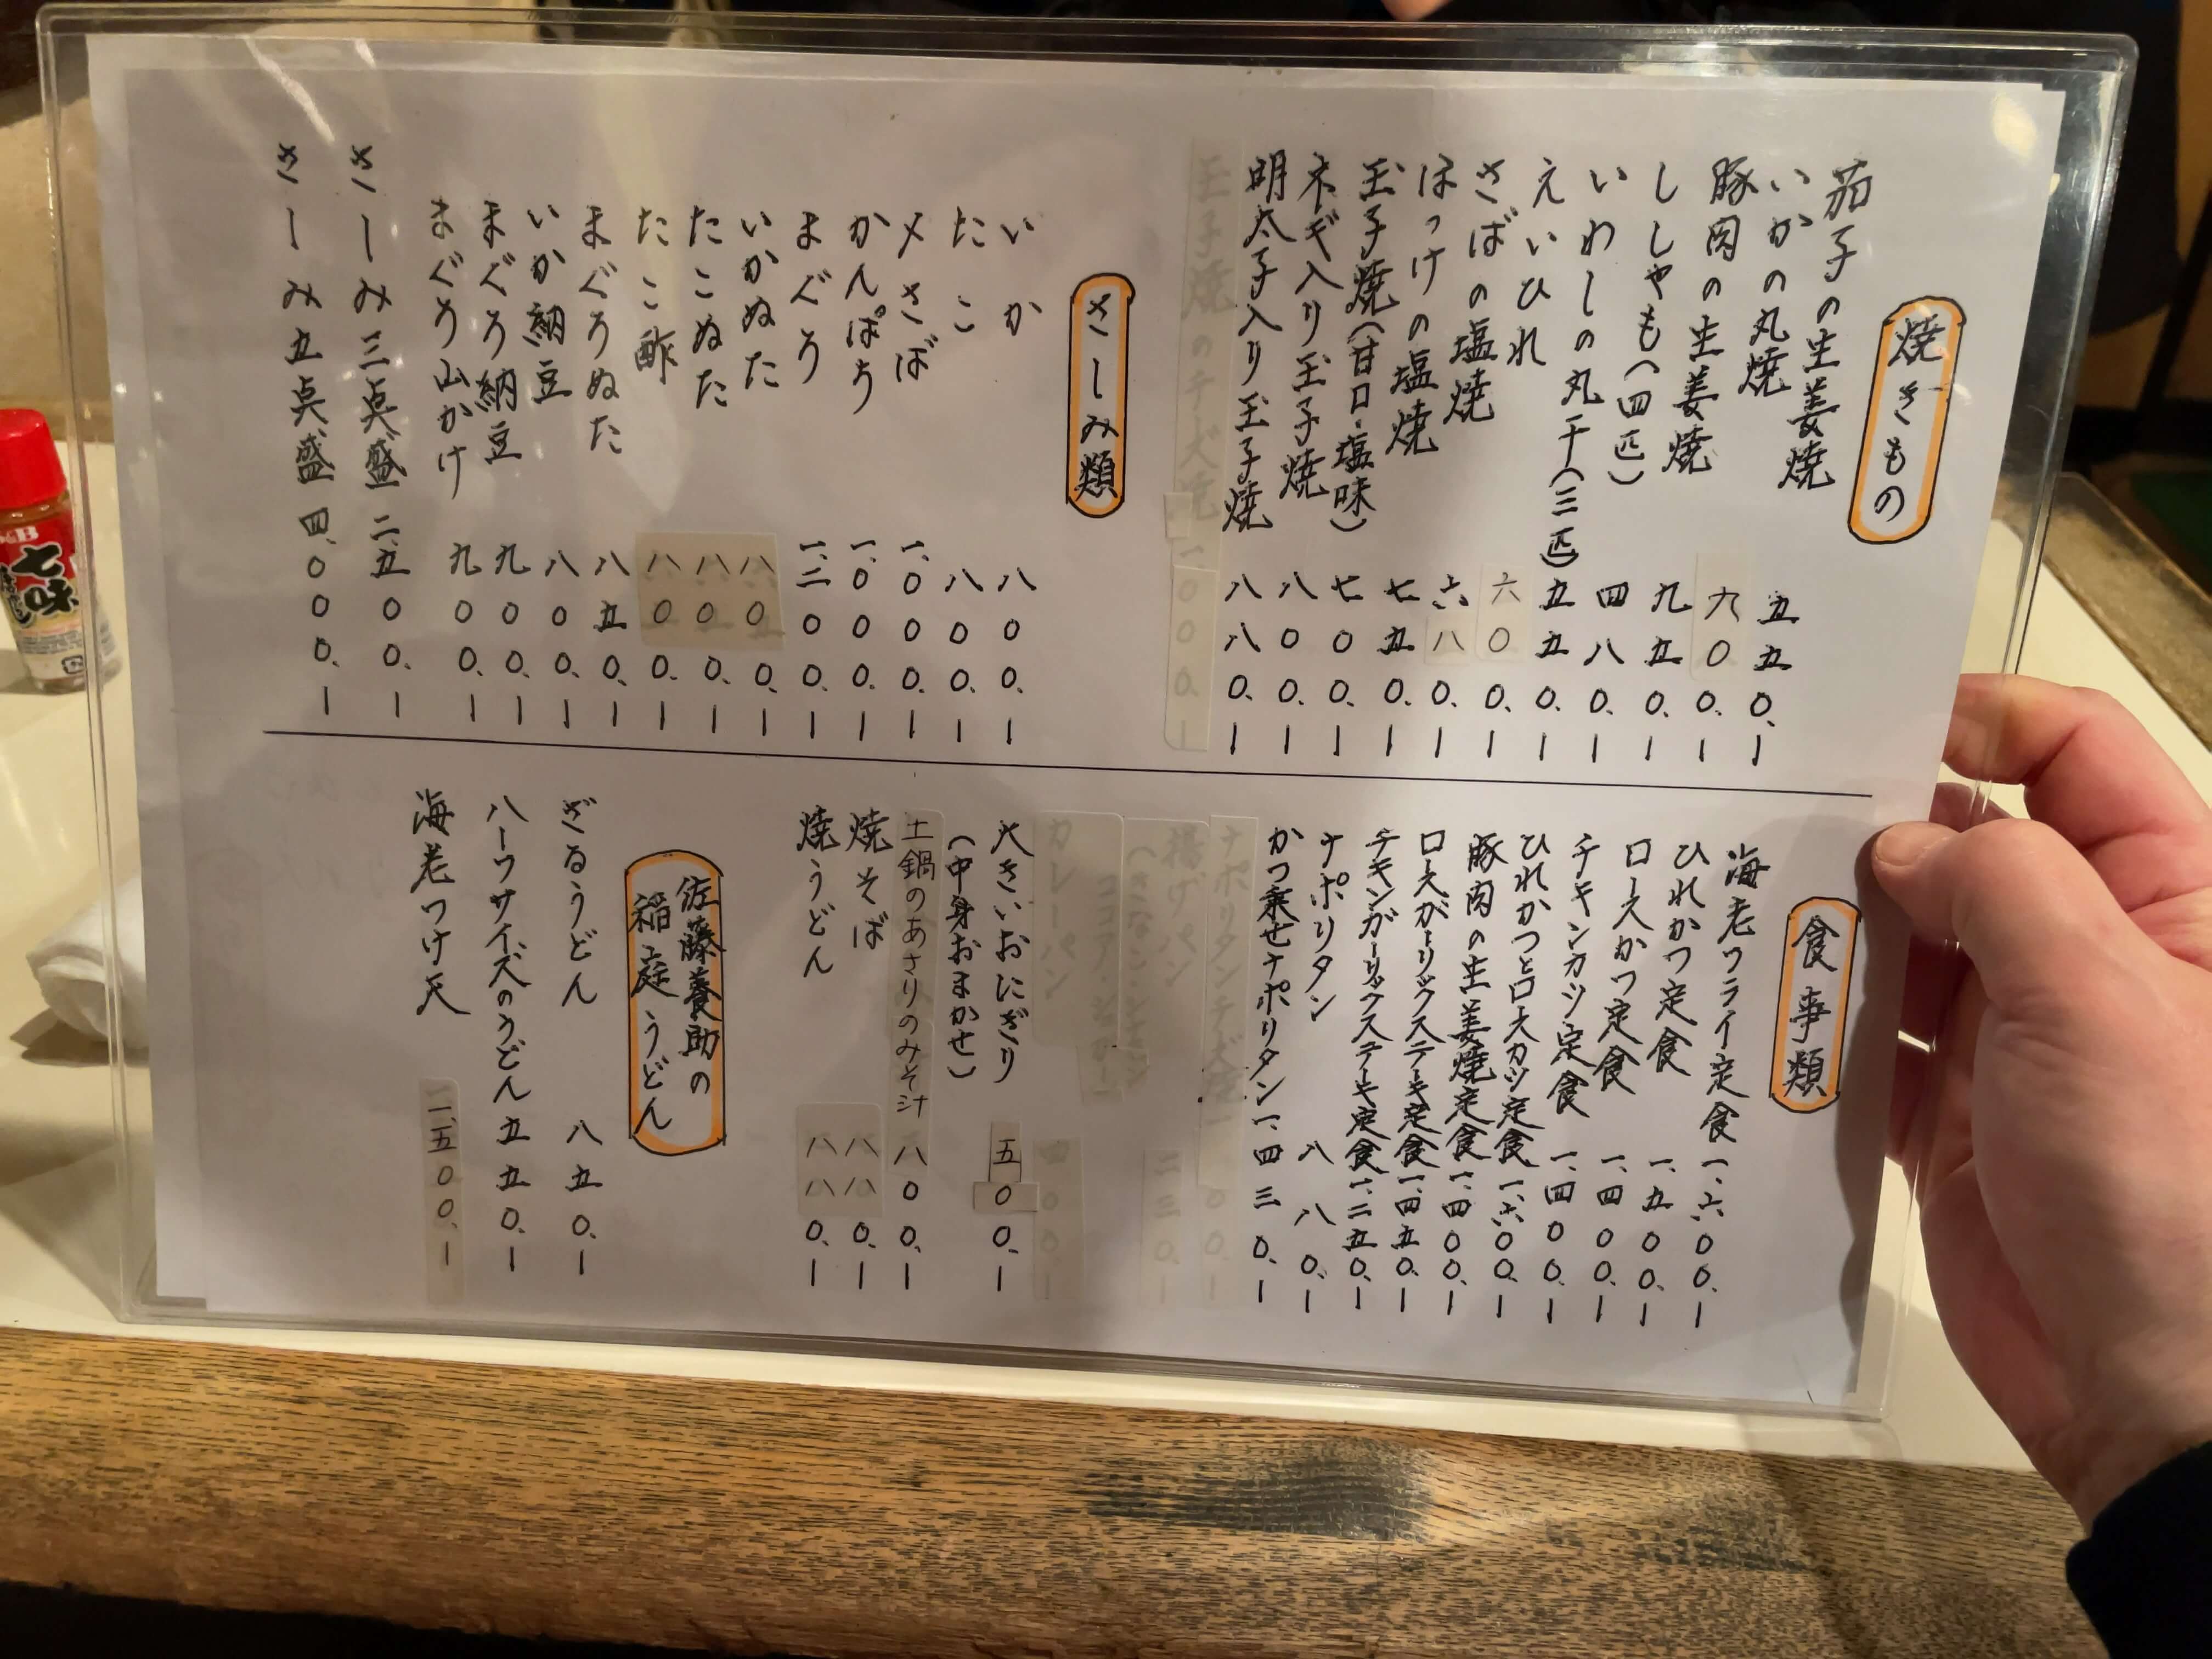 焼きもの
茄子の生姜焼 五五〇.ー
いかの丸焼 九〇〇.ー
豚肉の生姜焼 九五〇.ー
ししゃも(四匹) 四八〇.ー
いわしの丸干(三匹) 五五〇.ー
えいひれ 六〇〇.ー
さばの塩焼 六八〇.ー
ほっけの塩焼 七五〇.ー
玉子焼(甘口・塩味) 七〇〇.ー
ネギ入り玉子焼 八〇〇.ー
明太子入り玉子焼 八八〇.ー
さしみ類
いか 八〇〇.ー
たこ 八〇〇.ー
〆さば 一、〇〇〇.ー
かんぱち 一、〇〇〇.ー
まぐろ 一、二〇〇.ー
いかぬた 八〇〇.ー
たこぬた 八〇〇.ー
たこ酢 八〇〇.ー
まぐろぬた 八五〇.ー
いか納豆 八〇〇.ー
まぐろ納豆 九〇〇.ー
まぐろ山かけ 九〇〇.ー
さしみ三点盛 二、五〇〇.ー
さしみ五点盛 四、〇〇〇.ー
食事類
海老フライ定食 一、六〇〇.ー
ひれかつ定食 一、五〇〇.ー
ロースかつ定食 一、四〇〇.ー
チキンカツ定食 一、四〇〇.ー
ひれかつとロースカツ定食 一、六〇〇.ー
豚肉の生姜焼定食 一、四〇〇.ー
ロースガーリックステーキ定食 一、四五〇.ー
チキンガーリックステーキ定食 一、二五〇.ー
ナポリタン 八八〇.ー
かつ乗せナポリタン 一、四三〇.ー
大きいおにぎり 五〇〇.ー
(中身おまかせ)
土鍋のあさりのみそ汁 八〇〇.ー
焼そば 八八〇.ー
焼うどん 八八〇.ー
佐藤養助の
稲庭うどん
ざるうどん 八五〇.ー
ハーフサイズのうどん 五五〇.ー
海老つけ天 一、五〇〇.ー
S&B
七味